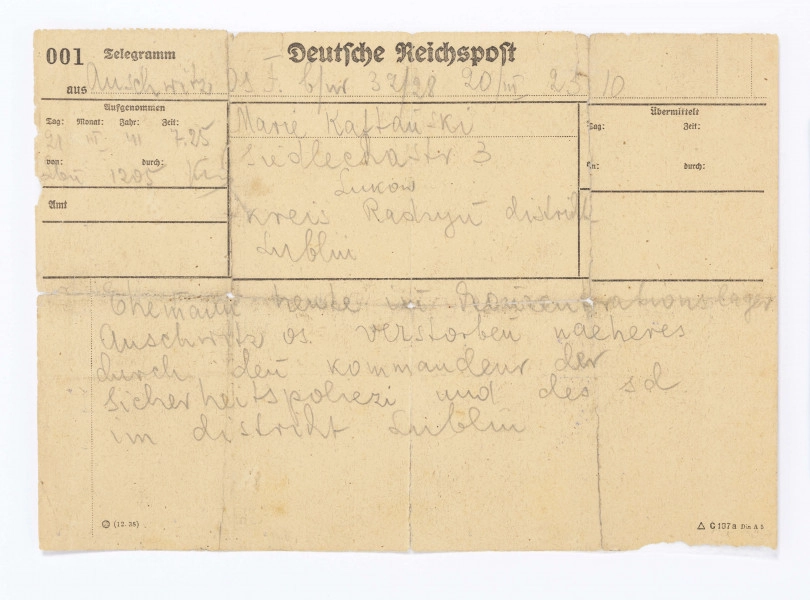 001 Telegramm
Deutsche Reichspost
aus Auschwitz OS F. 32/28 20/III 25 10
Aufgenommen
Tag: Monat: Jahr: Zeit:
21 III 41 7.25
von: durch:
1205
Amt
Marie
3
Lukow
kreis Radzyn distrikt
Lublin
Übermittelt
Tag: Zeit:
An: durch:
Ehemann heute im Konzentrationslager
Auschwitz os. verstorben naeheres
durch den kommandeur der
Sicherheitspolizei und des sd
im distrikt Lublin
(12.35)
C 187a Din A 5